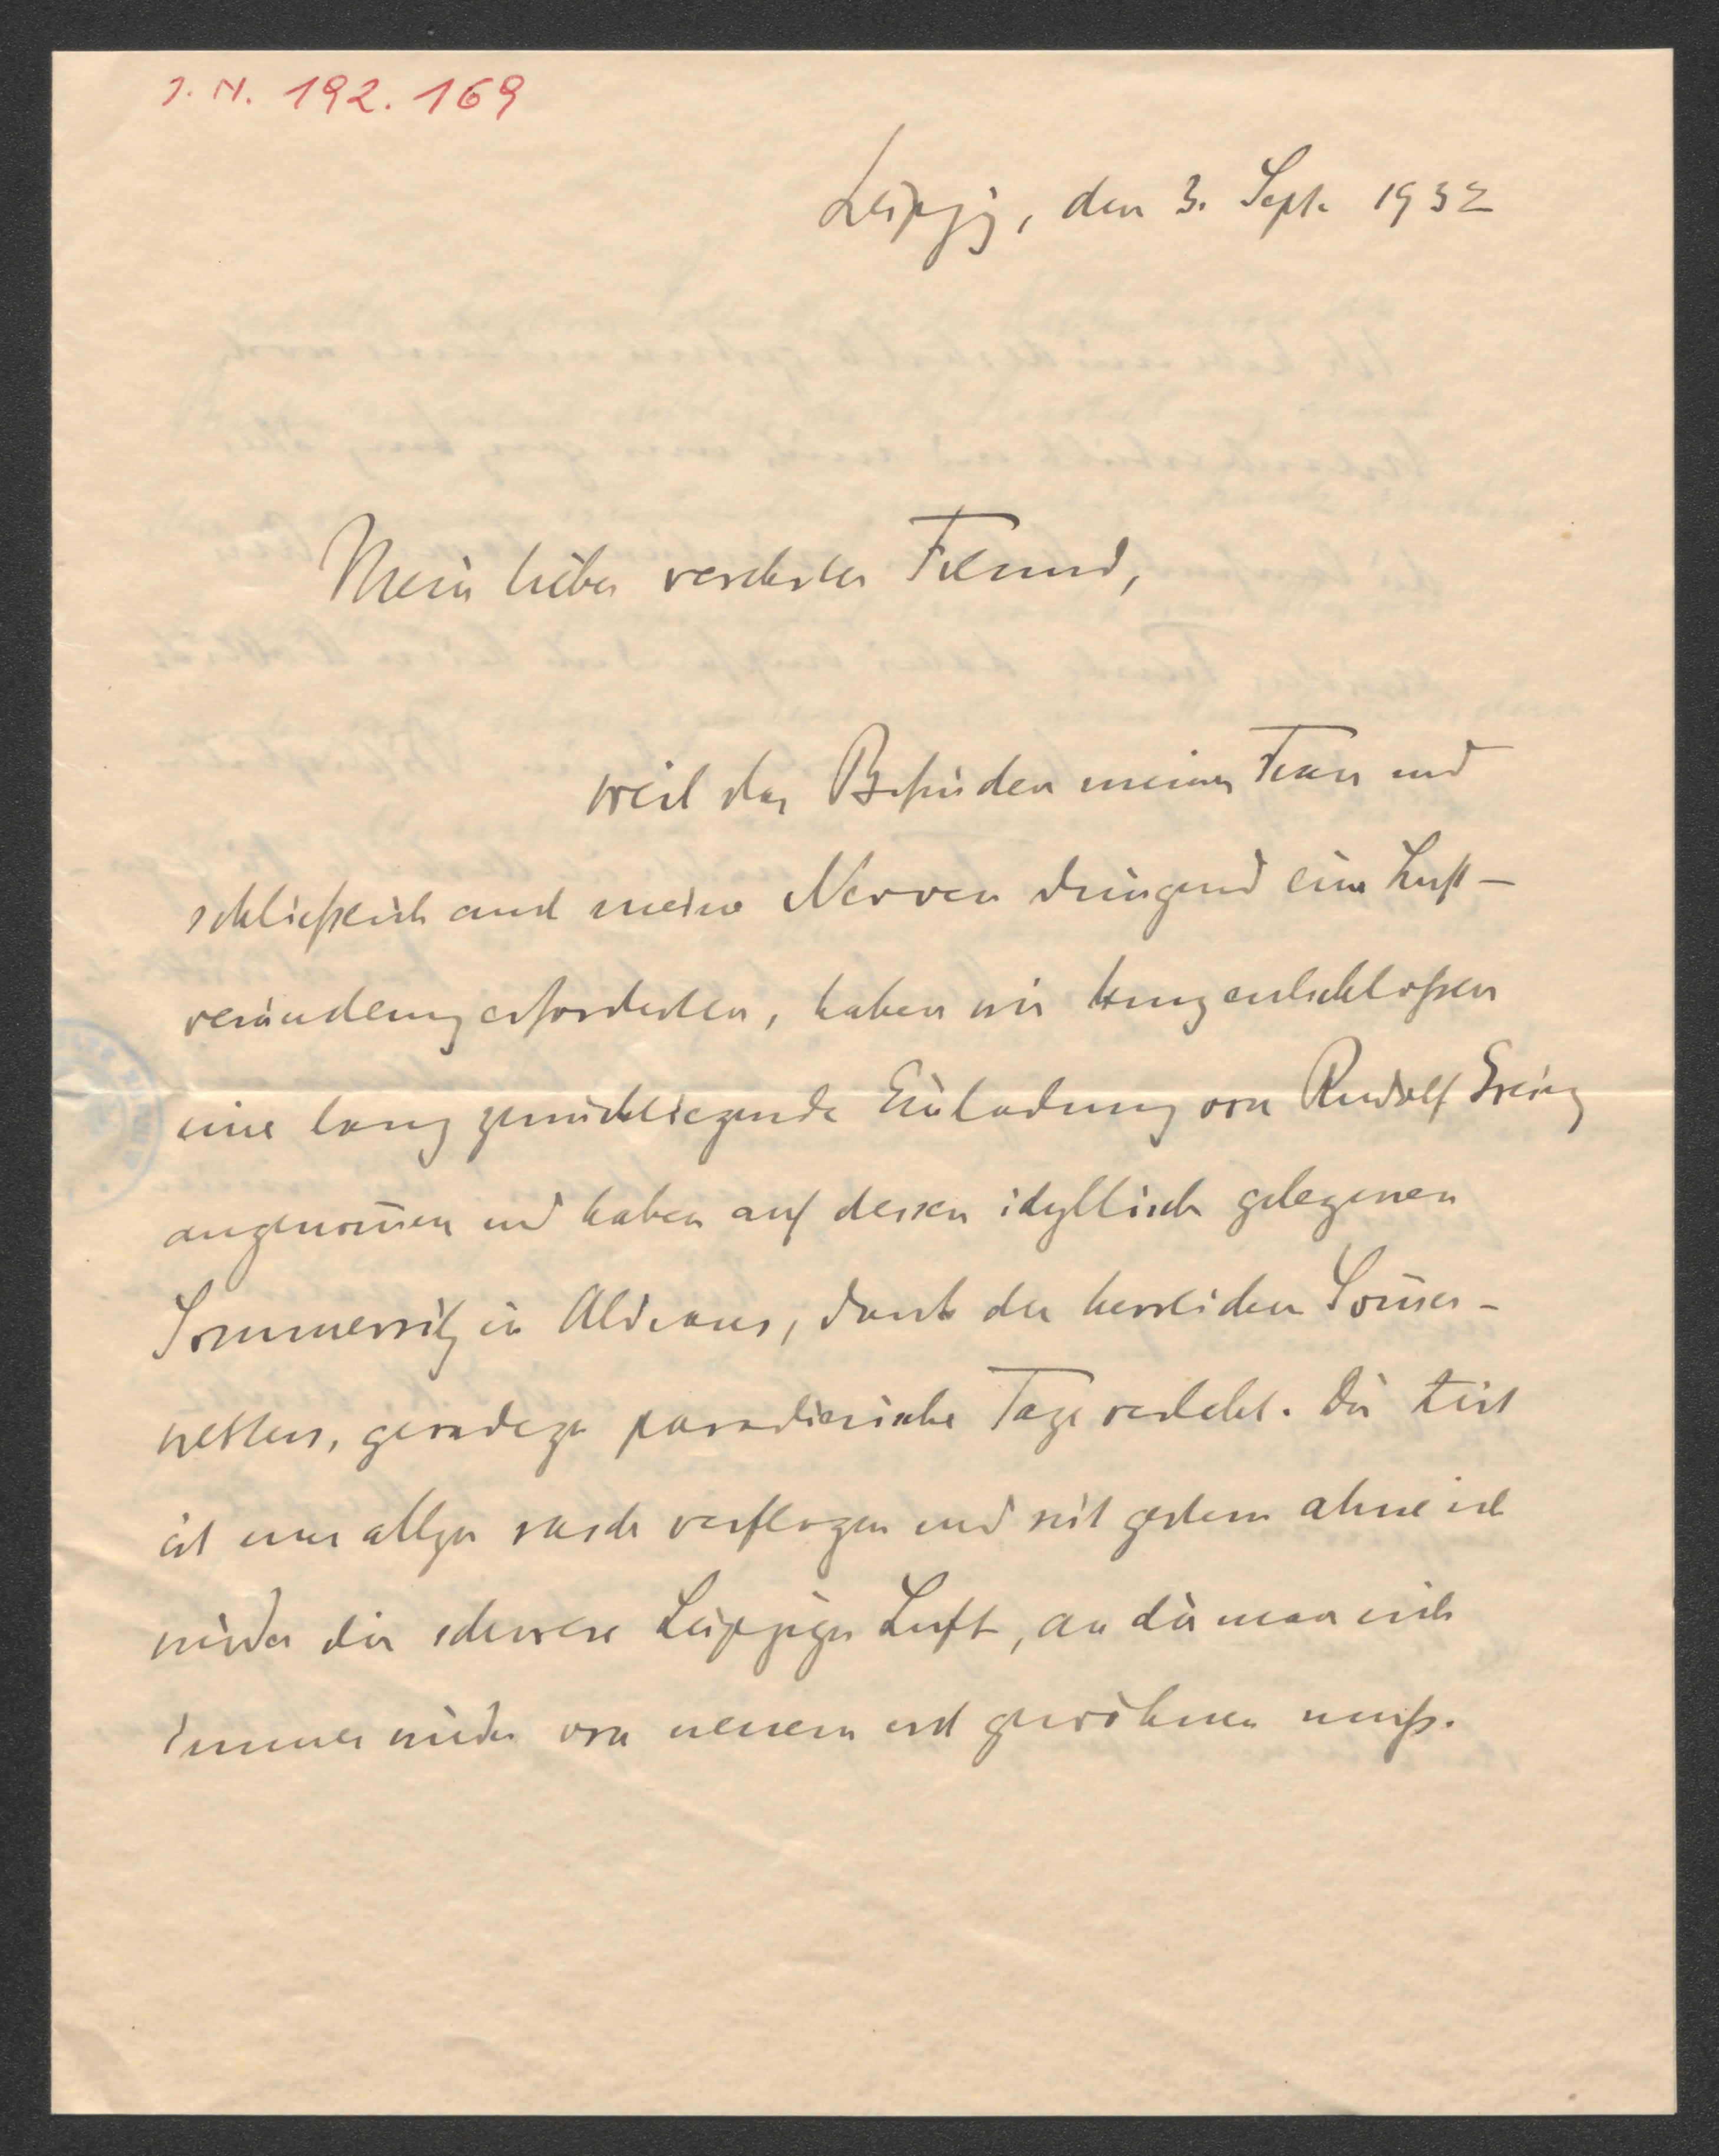 J. N. 192.169
Leipzig, den 3. Sept. 1932
Mein lieber verehrter Freund,
weil das Befinden meiner Frau und
schließlich auch meine Nerven dringend eine Luft-
veränderung erforderten, haben wir kurz entschloßen
eine lang zurückliegende Einladung von Rudolf Greinz
angenom̄en und haben auf dessen idyllisch gelegenen
Sommersitz in Aldrans, dank des herrlichen Som̄er-
wetters, geradezu paradiesische Tage verlebt. Die Zeit
ist nur allzu rasch verflogen und seit gestern atme ich
wieder die schwere Leipziger Luft, an die man sich
immer wieder von neuem erst gewöhnen muß.